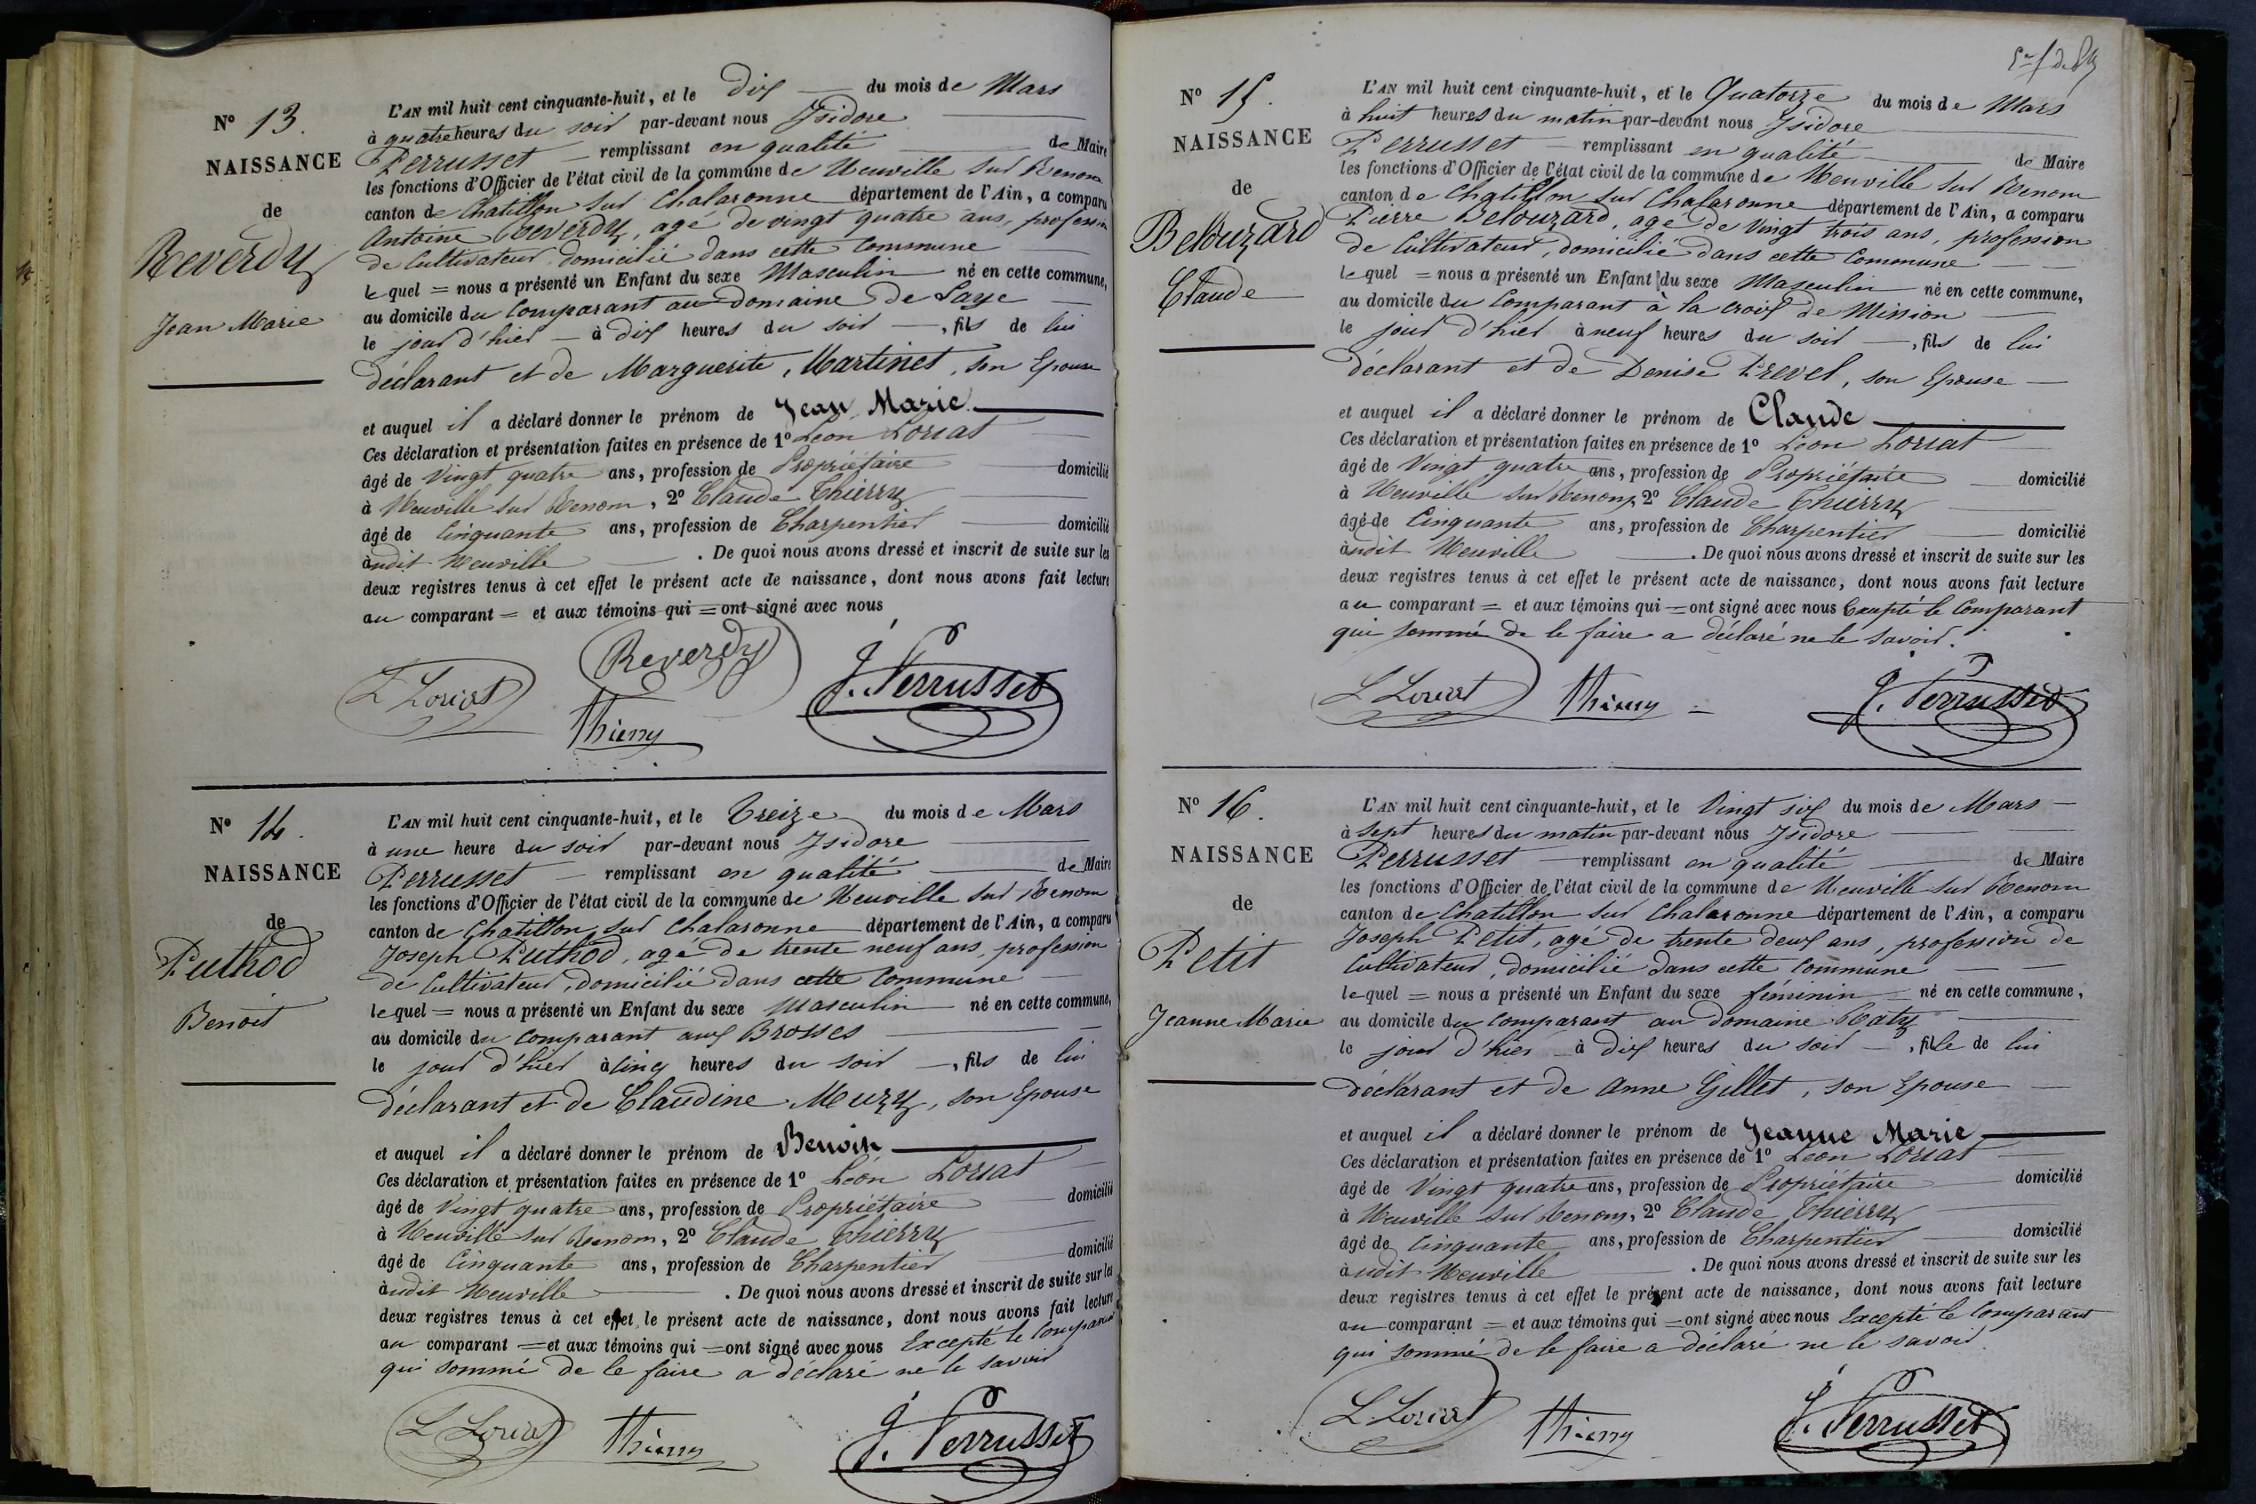 N° 13.
NAISSANCE
de
Reverdy
Jean Marie
L'AN mil huit cent cinquante-huit, et le dix du mois de Mars
à quatre heures du soir par-devant nous Isidore
Perrusset remplissant en qualité de Maire
les fonctions d'Officier de l'état civil de la commune de Neuville sur Renom
canton de Chatillon sur Chalaronne département de l'Ain, a comparu
Antoine Reverdy, agé de vingt quatre ans, profession
de Cultivateur domicilié dans cette commune
lequel = nous a présenté un Enfant du sexe Masculin né en cette commune,
au domicile du Comparant au domaine de Laye
le jour d'hier à dix heures du soir, fils de lui
déclarant et de Marguerite Martinet, son Epouse
et auquel il a déclaré donner le prénom de Jean Marie
Ces déclaration et présentation faites en présence de 1° Léon Loriat
âgé de Vingt quatre ans, profession de Propriétaire domicilié
à Neuville sur Renom, 2° Claude Thierry
âgé de Cinquante ans, profession de Charpentier domicilié
àudit Neuville. De quoi nous avons dressé et inscrit de suite sur les
deux registres tenus à cet effet le présent acte de naissance, dont nous avons fait lecture
au comparant = et aux témoins qui = ont signé avec nous
Reverdy
L Loriat
Thierry
J. Perrusset
N° 14.
NAISSANCE
de
Puthod
Benoit
L'AN mil huit cent cinquante-huit, et le Treize du mois de Mars
à une heure du soir par-devant nous Isidore
Perrusset remplissant en qualité de Maire
les fonctions d'Officier de l'état civil de la commune de Neuville sur Renom
canton de Chatillon sur Chalaronne département de l'Ain, a comparu
Joseph Puthod, agé de trente neuf ans, profession
de Cultivateur, domicilié dans cette commune
lequel = nous a présenté un Enfant du sexe Masculin né en cette commune,
au domicile du Comparant aux Brosses
le jour d'hier à cinq heures du soir, fils de lui
déclarant et de Claudine Muzy, son Epouse
et auquel il a déclaré donner le prénom de Benoit
Ces déclaration et présentation faites en présence de 1° Léon Loriat
âgé de Vingt quatre ans, profession de Propriétaire domicilié
à Neuville sur Renom, 2° Claude Thierry
âgé de Cinquante ans, profession de Charpentier domicilié
àudit Neuville. De quoi nous avons dressé et inscrit de suite sur les
deux registres tenus à cet effet le présent acte de naissance, dont nous avons fait lecture
au comparant = et aux témoins qui = ont signé avec nous Excepté le Comparant
qui sommé de le faire a déclaré ne le savoir
L Loriat Thierry J. Perrusset
N° 15.
NAISSANCE
de
Belouzard
Claude
L'AN mil huit cent cinquante-huit, et le Quatorze du mois de Mars
à huit heures du matin par-devant nous Isidore
Perrusset remplissant en qualité de Maire
les fonctions d'Officier de l'état civil de la commune de Neuville sur Renom
canton de Chatillon sur Chalaronne département de l'Ain, a comparu
Pierre Belouzard, agé de Vingt trois ans, profession
de Cultivateur, domicilié dans cette Commune
lequel = nous a présenté un Enfant du sexe Masculin né en cette commune,
au domicile du Comparant à la croix de Mission
le jour d'hier à neuf heures du soir, fils de lui
déclarant et de Denise Prevel, son Epouse
et auquel il a déclaré donner le prénom de Claude
Ces déclaration et présentation faites en présence de 1° Léon Loriat
âgé de Vingt quatre ans, profession de Propriétaire domicilié
à Neuville sur Renom, 2° Claude Thierry
âgé de Cinquante ans, profession de Charpentier domicilié
àudit Neuville. De quoi nous avons dressé et inscrit de suite sur les
deux registres tenus à cet effet le présent acte de naissance, dont nous avons fait lecture
au comparant = et aux témoins qui = ont signé avec nous Excepté le Comparant
qui sommé de le faire a déclaré ne le savoir.
L Loriat Thierry J. Perrusset
N° 16.
NAISSANCE
de
Petit
Jeanne Marie
L'AN mil huit cent cinquante-huit, et le Vingt six du mois de Mars
à sept heures du matin par-devant nous Isidore
Perrusset remplissant en qualité de Maire
les fonctions d'Officier de l'état civil de la commune de Neuville sur Renom
canton de Chatillon sur Chalaronne département de l'Ain, a comparu
Joseph Petit, agé de trente deux ans, profession de
Cultivateur, domicilié dans cette commune
lequel = nous a présenté un Enfant du sexe féminin né en cette commune,
au domicile du Comparant au domaine Raty
le jour d'hier à dix heures du soir, fille de lui
déclarant et de Anne Gillet, son Epouse
et auquel il a déclaré donner le prénom de Jeanne Marie
Ces déclaration et présentation faites en présence de 1° Léon Loriat
âgé de Vingt quatre ans, profession de Propriétaire domicilié
à Neuville sur Renom, 2° Claude Thierry
âgé de Cinquante ans, profession de Charpentier domicilié
àudit Neuville. De quoi nous avons dressé et inscrit de suite sur les
deux registres tenus à cet effet le présent acte de naissance, dont nous avons fait lecture
au comparant = et aux témoins qui = ont signé avec nous Excepté le Comparant
qui sommé de le faire a déclaré ne le savoir
L Loriat Thierry J. Perrusset